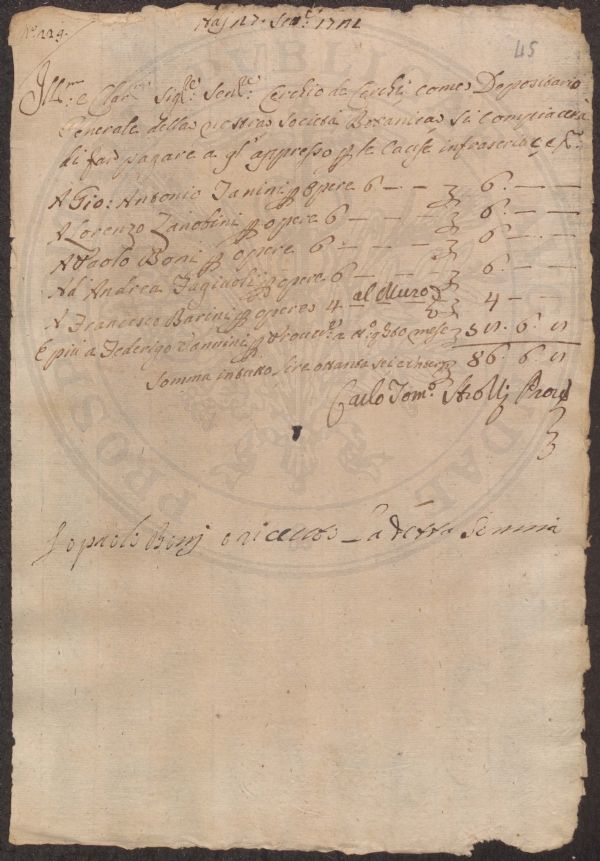 N.° 229.
45
Ill.mo e Clar.mo Sig.re Sen.re Cerchio de Cerchi come Depositario
Generale della nostra Società Botanica si compiacerà
di far pagare a gl'appresso p le cause infrascritte
A Gio: Antonio Janini p opere 6 — — 6. — —
A Lorenzo Zanobini p opere 6 — — 6. — —
A Paolo Boni p opere 6 — — 6. — —
Ad Andrea Fagiuoli p opere 6 — — 6. — —
A Francesco Barini p opere 4 al Muro 4 — —
E più a Federigo Vannini p
Somma in tutto Lire ottanta sei 86. 6.
Carlo Tom.o Strozzi Prov.e
Io paolo Bonj o riceuto La detta Somma